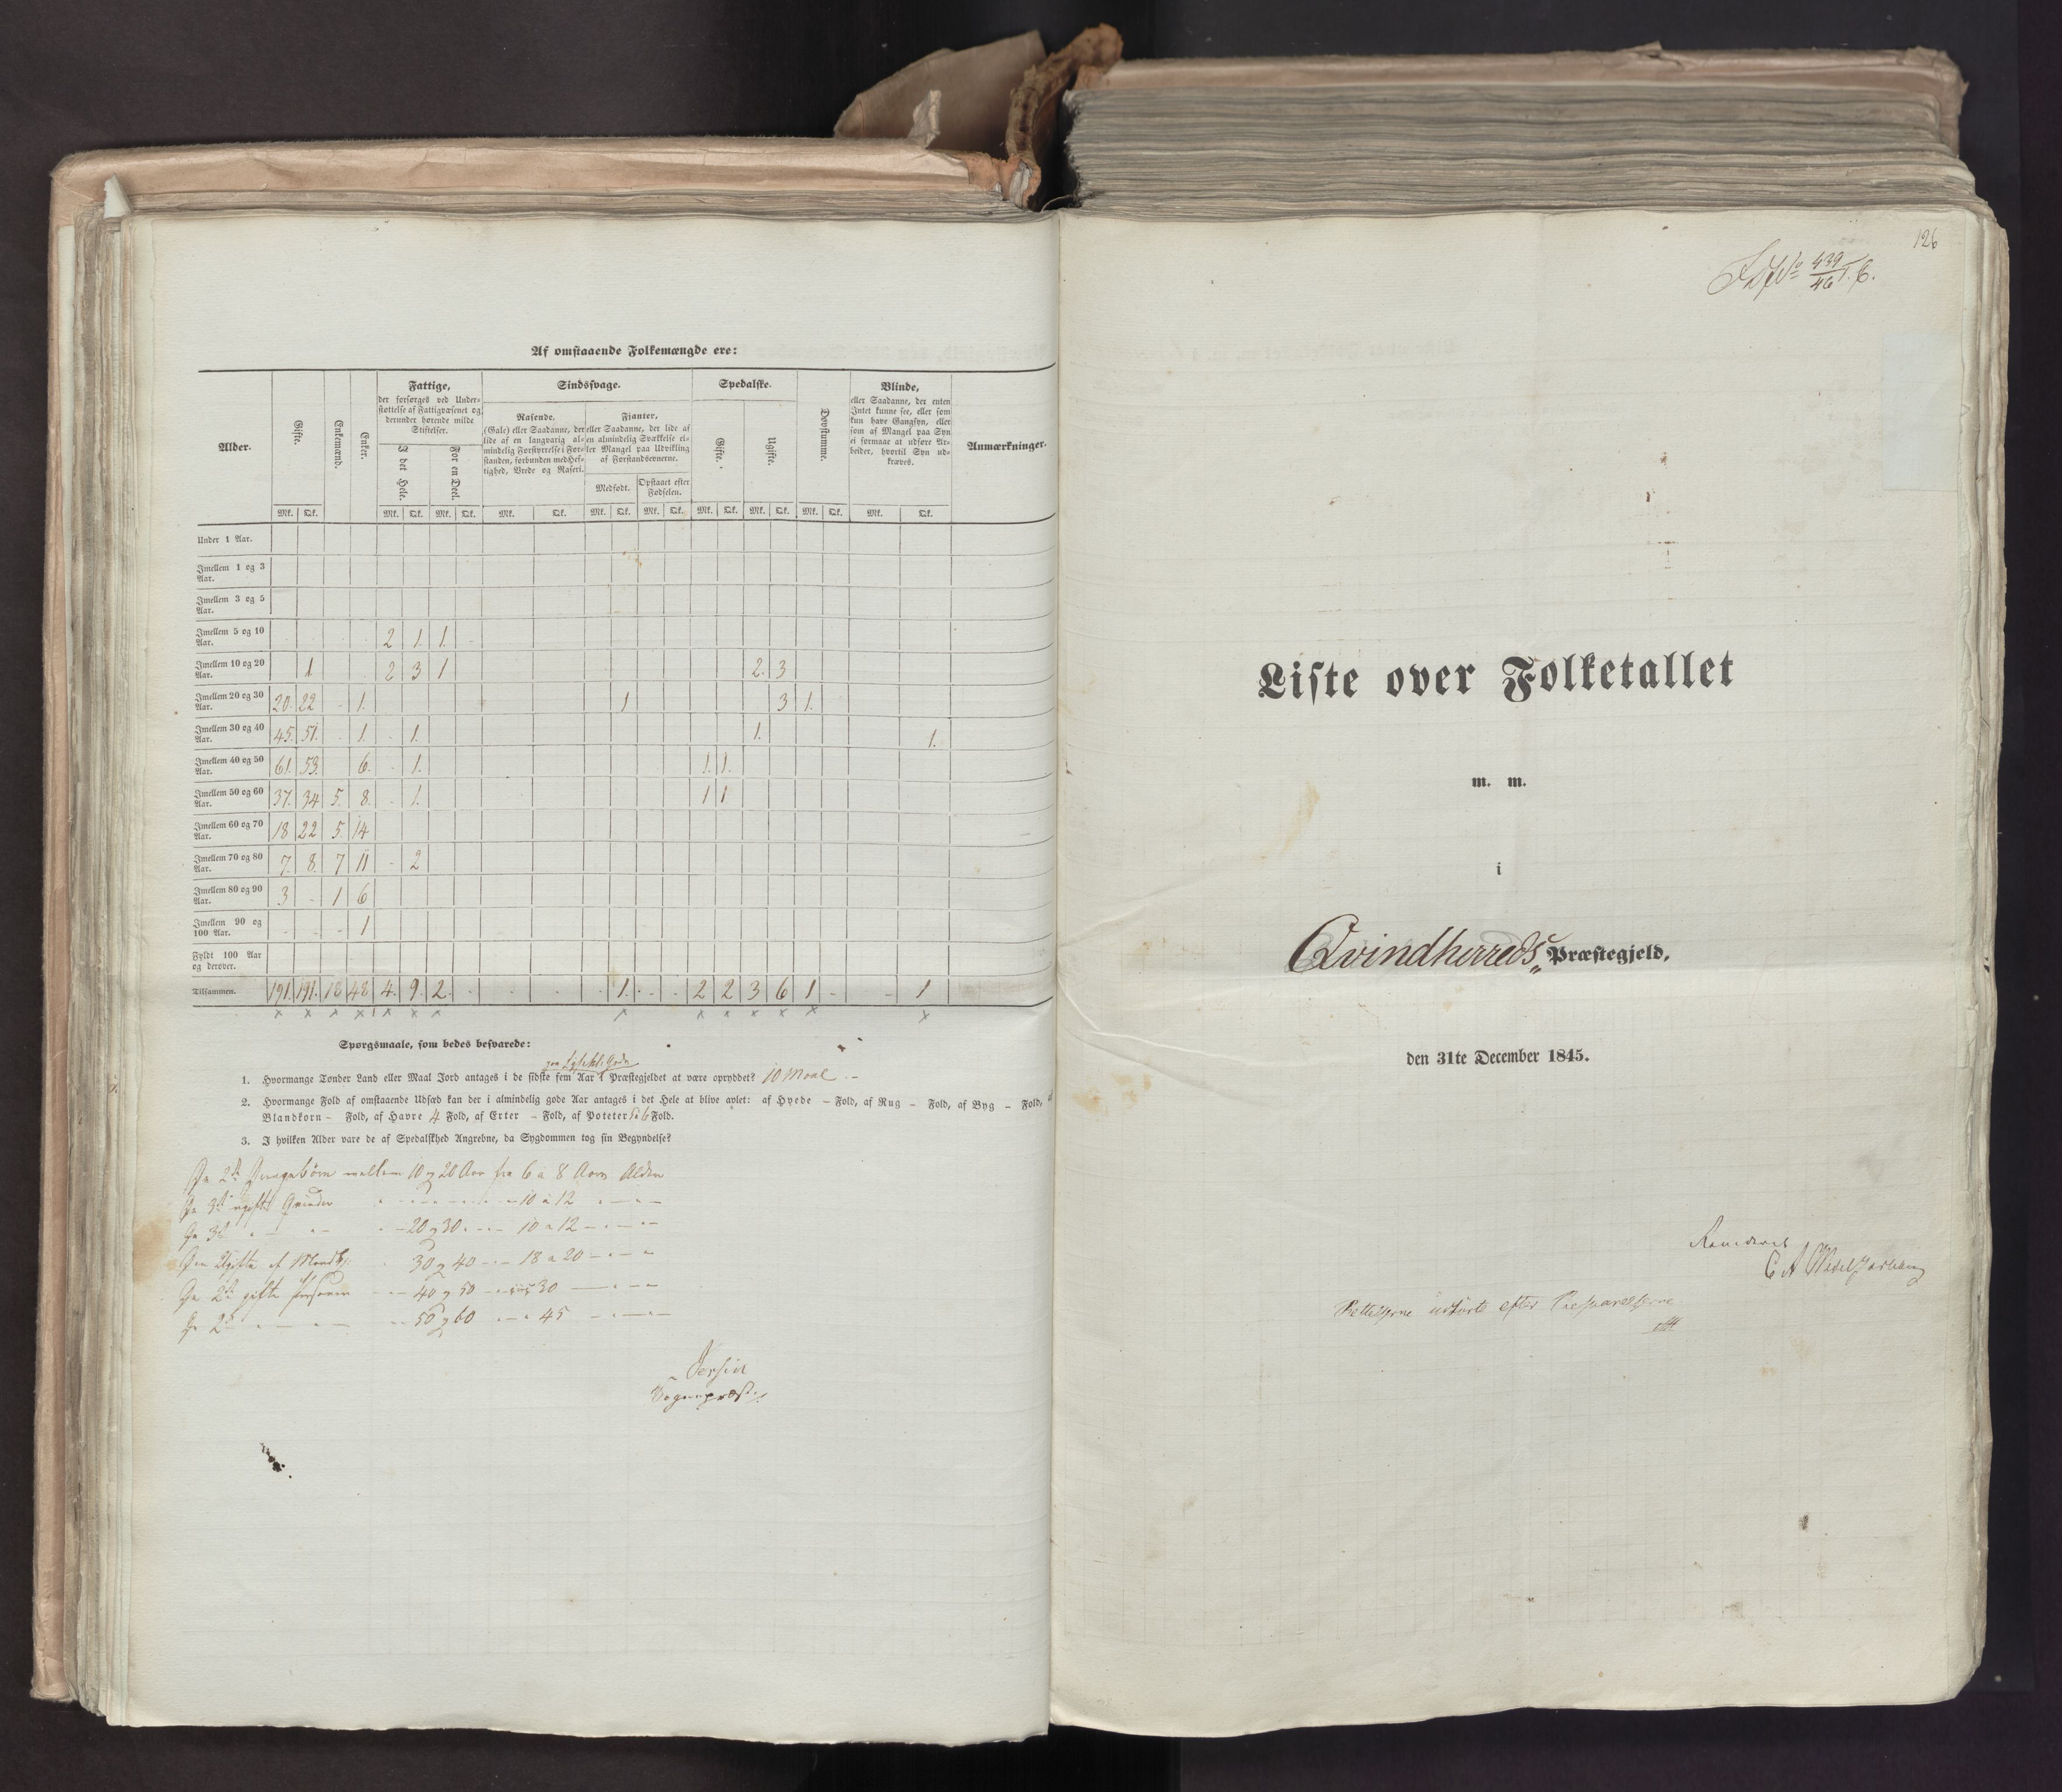 Af omstaaende Folkemængde ere:
Alder.
Gifte.
Enkemænd.
Enker.
Fattige,
der forsørges ved Under-
støttelse af Fattigvæsenet og
derunder hørende milde
Stiftelser.
I det Hele.
For en Deel.
Sindssvage.
Rasende,
(Gale) eller Saadanne, der
lide af en langvarig al-
mindelig Forstyrrelse i For-
standen, forbunden med Hef-
tighed, Vrede og Raseri.
Fianter,
eller Saadanne, der lide af
en almindelig Svækkelse el-
ler Mangel paa Udvikling
af Forstandsevnerne.
Medfødt.
Opstaaet efter
Fødselen.
Spedalske.
Gifte.
Ugifte.
Døvstumme.
Blinde,
eller Saadanne, der enten
Intet kunne see, eller som
kun have Gangsyn, eller
som af Mangel paa Syn
ei formaae at udføre Ar-
beider, hvortil Syn ud-
kræves.
Anmærkninger.
Mk. Qk. Mk. Qk. Mk. Qk. Mk. Qk. Mk. Qk. Mk. Qk. Mk. Qk. Mk. Qk. Mk. Qk. Mk. Qk.
Under 1 Aar.
Imellem 1 og 3
Aar.
Imellem 3 og 5
Aar.
Imellem 5 og 10
Aar. 2 1. 1.
Imellem 10 og 20
Aar. 1 2 3 1 2. 3
Imellem 20 og 30
Aar. 20. 22 - 1. 1 3 1.
Imellem 30 og 40
Aar. 45. 51. - 1. - 1. 1. 1.
Imellem 40 og 50
Aar. 61. 53. 6. - 1. 1. 1.
Imellem 50 og 60
Aar. 37. 34 5. 8. - 1. 1 1
Imellem 60 og 70
Aar. 18 22 5 14
Imellem 70 og 80
Aar. 7. 8. 7 11 - 2
Imellem 80 og 90
Aar. 3 - 1 6
Imellem 90 og
100 Aar. - - - 1
Fyldt 100 Aar
og derover.
Tilsammen. 191. 191. 18 48 4. 9. 2. 1. 2 2 3 6 1 - - 1
Spørgsmaale, som bedes besvarede:
1. Hvormange Tønder Land eller Maal Jord antages i de sidste fem Aar i Præstegjeldet at være opryddet? 10 Maal. -
2. Hvormange Fold af omstaaende Udsæd kan der i almindelig gode Aar antages i det Hele at blive avlet: af Hvede - Fold, af Rug - Fold, af Byg - Fold,
Blandkorn - Fold, af Havre 4 Fold, af Erter - Fold, af Poteter 5 à 6 Fold.
3. I hvilken Alder vare de af Spedalskhed Angrebne, da Sygdommen tog sin Begyndelse?
De 2de Drengebørn mellem 10 og 20 Aar fra 6 à 8 Aars Alder
De 3de ugifte Qvinder - - - 10 à 12 - - -
De 3de - - - 20 og 30 - - - 10 à 12 - - -
Den Ugifte af Mandkj: - 30 og 40 - - 18 à 20 - - -
De 2de gifte Personer - - 40 og 50 - - 30 - - -
De 2de - - - 50 og 60 - - 45 - - -
Sognepræst.
126
439
46
Liste over Folketallet
m. m.
i
Qvindherreds Præstegjeld,
den 31te December 1845.
Revideret
Rettelserne udførte efter